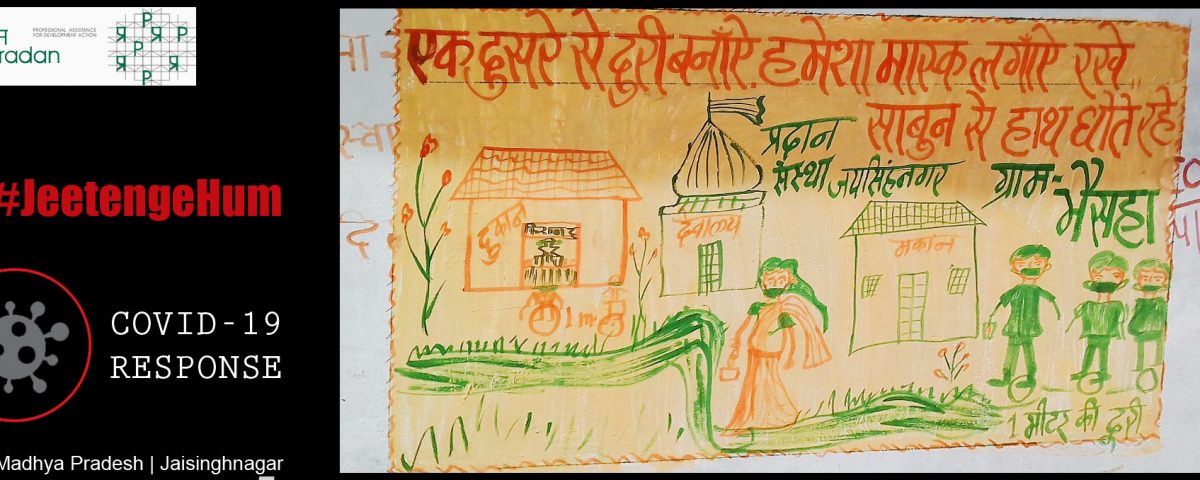 न
radan
PROFESSIONAL ASSISTANCE
FOR DEVELOPMENT ACTION
#JeetengeHum
COVID-19
RESPONSE
Madhya Pradesh | Jaisinghnagar
एक दुसरे से दुरी बनाँऐ हमेशा मास्क लगाँऐ रखे
साबुन से हाथ धोते रहे
प्रदान
संस्था जयसिंहनगर
ग्राम-
मैसहा
दुकान
किराना
देवालय
मकान
1m
1 मीटर की दूरी